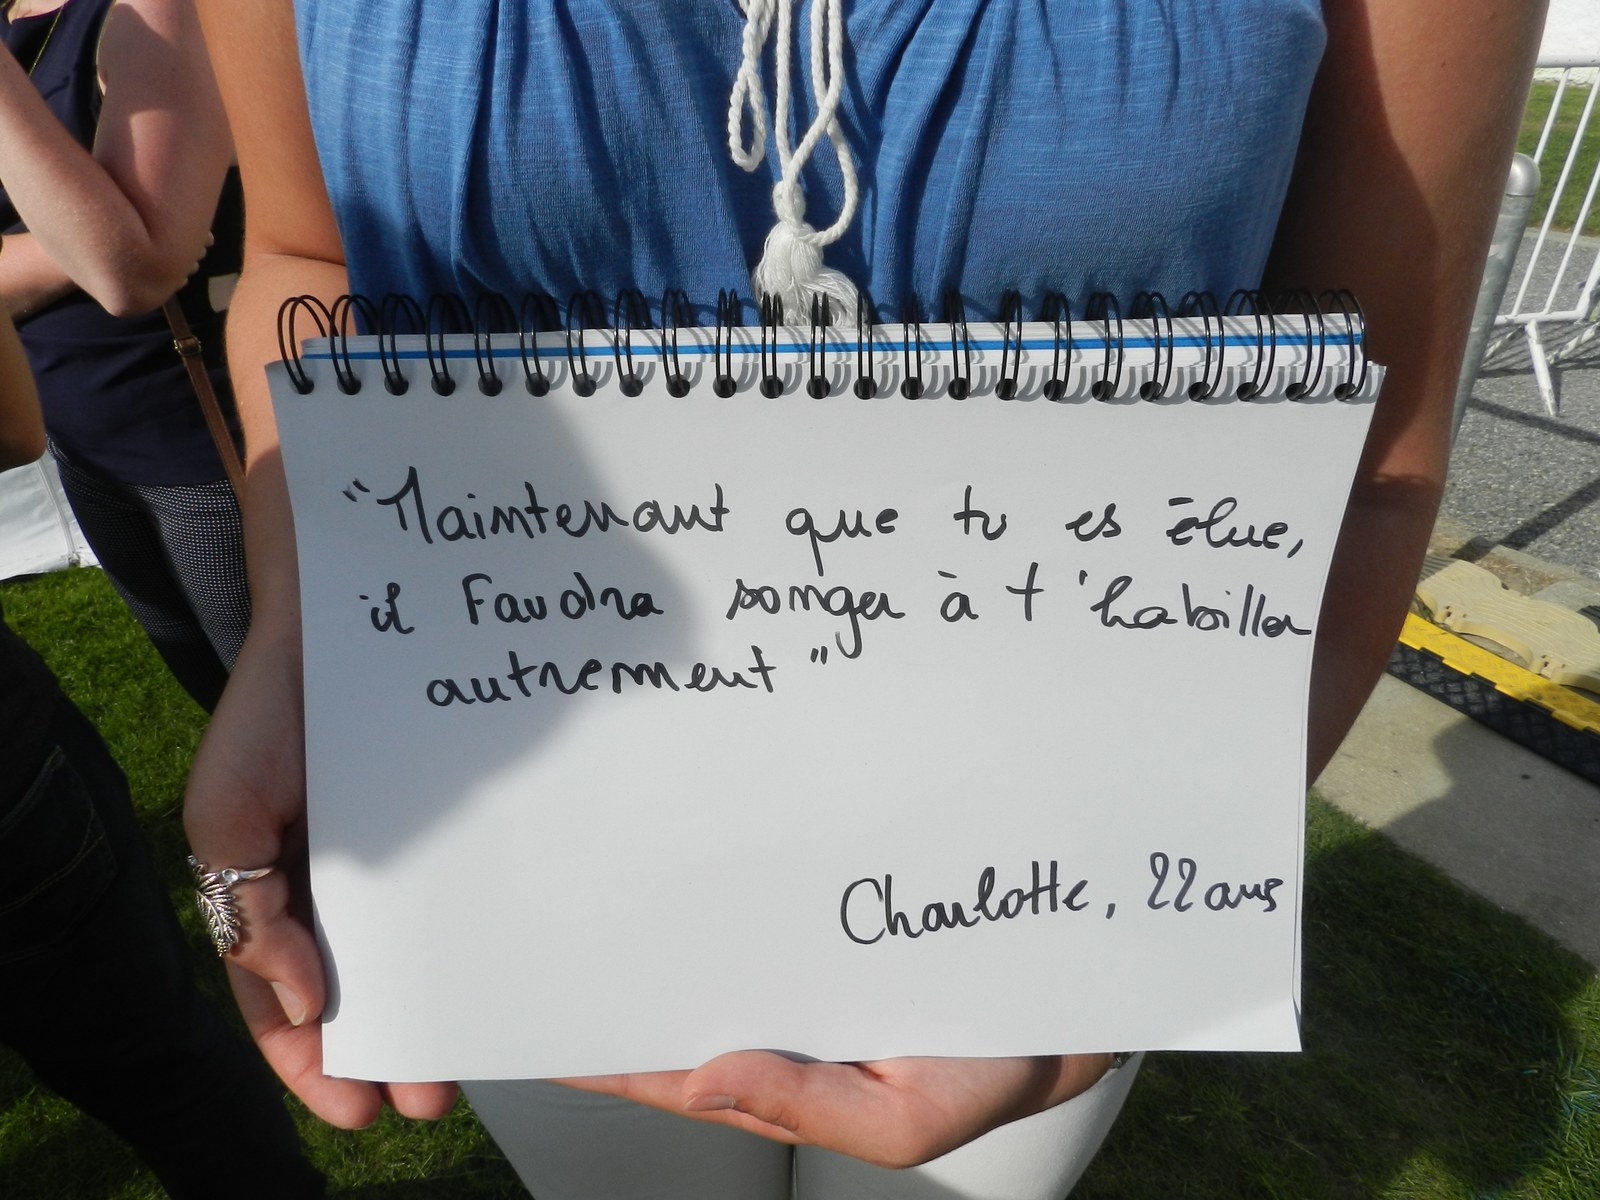 "Maintenant que tu es élue,
il Faudra songer à t'habiller
autrement"
Charlotte, 22 ans